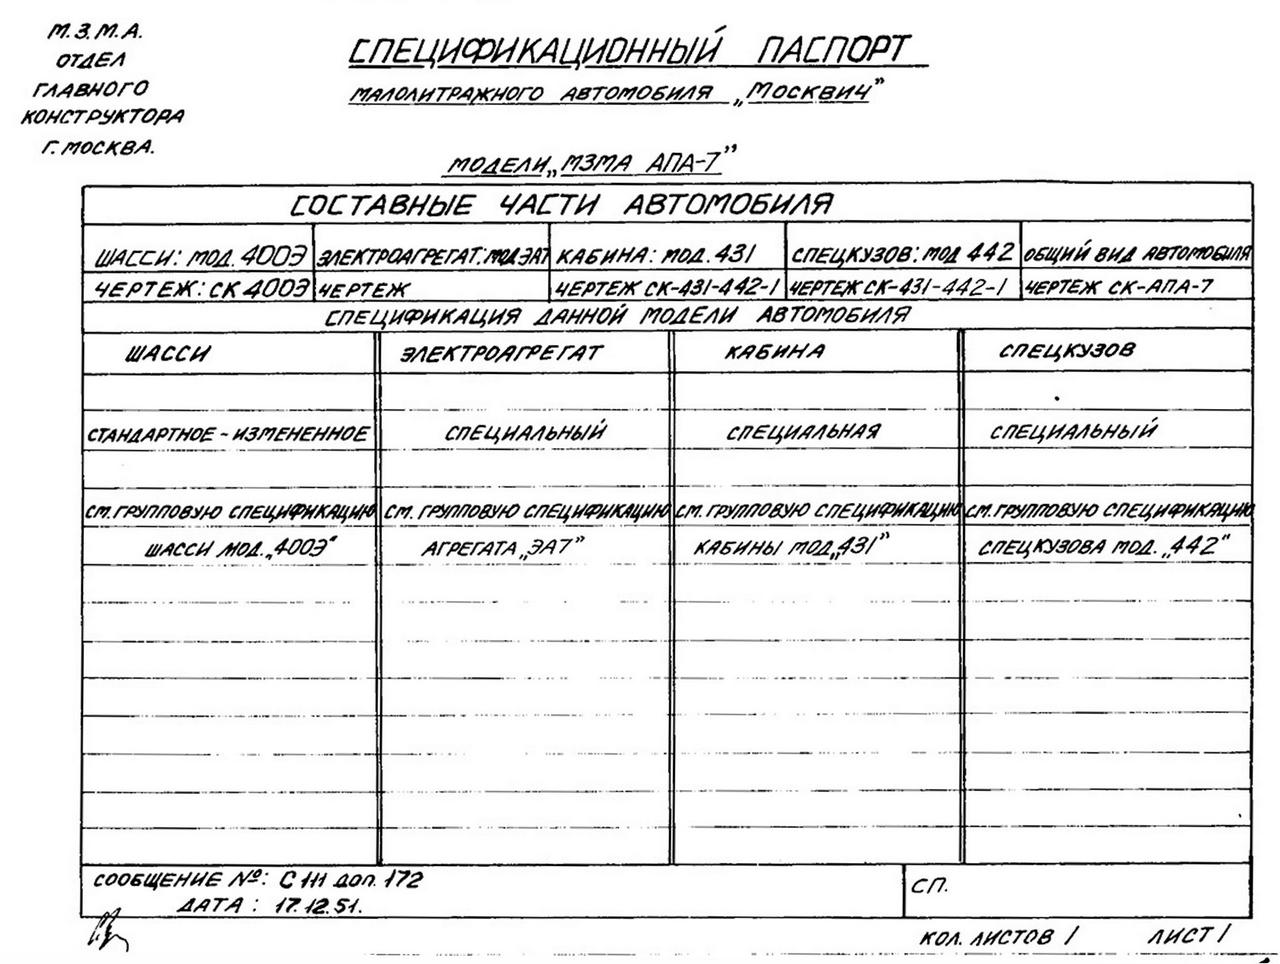 М.З.М.А.
ОТДЕЛ
ГЛАВНОГО
КОНСТРУКТОРА
Г. МОСКВА.
СПЕЦИФИКАЦИОННЫЙ ПАСПОРТ
МАЛОЛИТРАЖНОГО АВТОМОБИЛЯ „Москвич"
МОДЕЛИ „МЗМА АПА-7"
СОСТАВНЫЕ ЧАСТИ АВТОМОБИЛЯ
ШАССИ: МОД. 400Э ЭЛЕКТРОАГРЕГАТ: МОД. ЭА7 КАБИНА: МОД. 431 СПЕЦКУЗОВ: МОД 442 ОБЩИЙ ВИД АВТОМОБИЛЯ
ЧЕРТЕЖ: СК 400Э ЧЕРТЕЖ ЧЕРТЕЖ СК-431-442-1 ЧЕРТЕЖ СК-431-442-1 ЧЕРТЕЖ СК-АПА-7
СПЕЦИФИКАЦИЯ ДАННОЙ МОДЕЛИ АВТОМОБИЛЯ
ШАССИ ЭЛЕКТРОАГРЕГАТ КАБИНА СПЕЦКУЗОВ
СТАНДАРТНОЕ - ИЗМЕНЕННОЕ СПЕЦИАЛЬНЫЙ СПЕЦИАЛЬНАЯ СПЕЦИАЛЬНЫЙ
СМ. ГРУППОВУЮ СПЕЦИФИКАЦИЮ СМ. ГРУППОВУЮ СПЕЦИФИКАЦИЮ СМ. ГРУППОВУЮ СПЕЦИФИКАЦИЮ СМ. ГРУППОВУЮ СПЕЦИФИКАЦИЮ
ШАССИ МОД. „400Э" АГРЕГАТА „ЭА7" КАБИНЫ МОД „431" СПЕЦКУЗОВА МОД. „442"
СООБЩЕНИЕ №: С 111 доп. 172
ДАТА : 17.12.51.
СП.
КОЛ. ЛИСТОВ 1 ЛИСТ 1